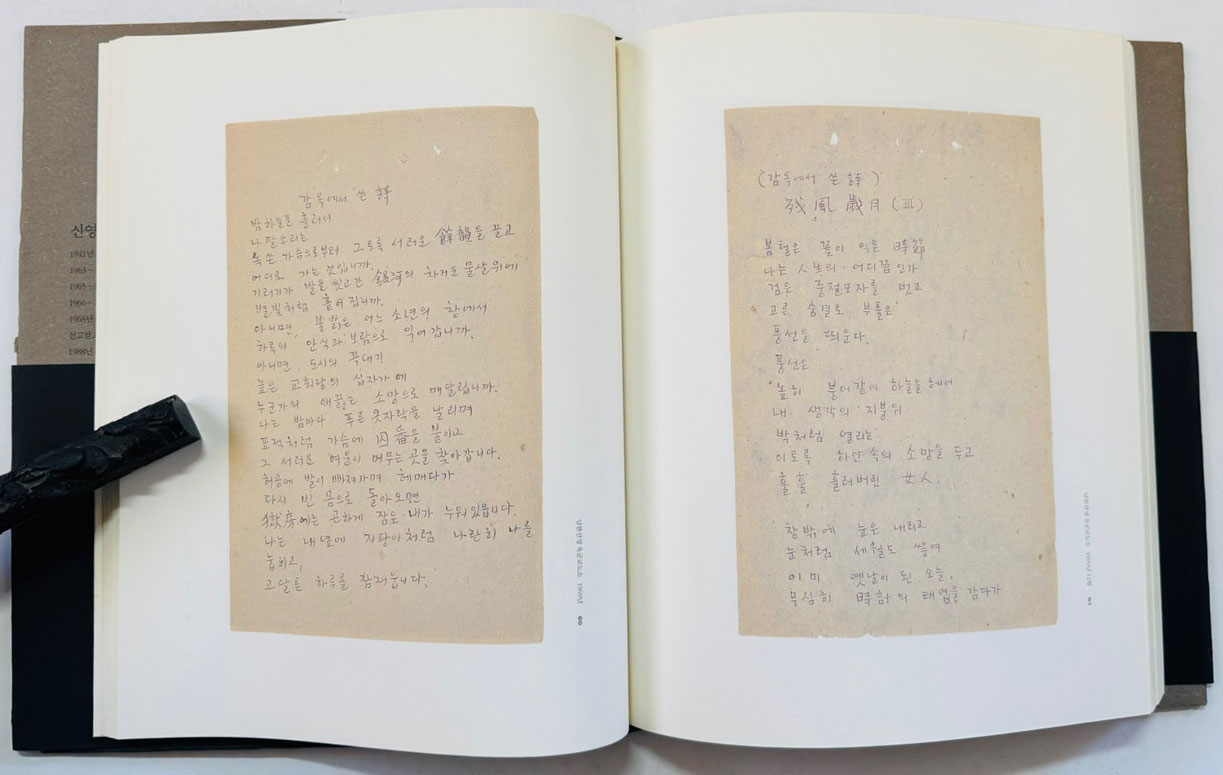 신영
1941년
1988년
감옥에서 쓴 詩
밤하늘은 흘러서
나팔소리는
목 쉰 가슴으로부터 그토록 서러운 餘韻을 끌고
어디로 가는 것입니까.
기러기가 발을 씻고간 銀河의 차거운 물살위에
별빛처럼 흩어집니까.
아니면, 불 밝은 어느 소년의 창에서
하루의 안식과 보람으로 익어 갑니까.
아니면, 도시의 꼭대기
높은 교회당의 십자가에
누군가의 애끓는 소망으로 매달립니까.
나는 밤마다 푸른 옷자락을 날리며
표적처럼 가슴에 囚番을 붙이고
그 서러운 여운이 머무는 곳을 찾아갑니다.
허공에 발이 빠져가며 헤매다가
다시 빈 몸으로 돌아오면
獄房에는 곤하게 잠든 내가 누워있읍니다.
나는 내 곁에 지팡이처럼 나란히 나를
눕히고,
고달픈 하루를 잠재웁니다.
남한산성 육군교도소 1969년
60
(감옥에서 쓴 詩)
残風歲月(III)
봄철은 꽃이 익은 時節
나는 人生의 어디쯤인가
검은 중절모자를 벗고
고른 숨결로 부풀은
풍선을 띄운다.
풍선은
높히 붕어같이 하늘을 헤어
내 생각의 지붕위
박처럼 열리는
이토록 하얀 속의 소망을 두고
훌훌 흘러버린 女人.
창밖에 눈은 내리고
눈처럼 세월도 쌓여
이미 옛날이 된 오늘,
무심히 時計의 태엽을 감다가
남한산성 육군교도소 1969년 12월
61